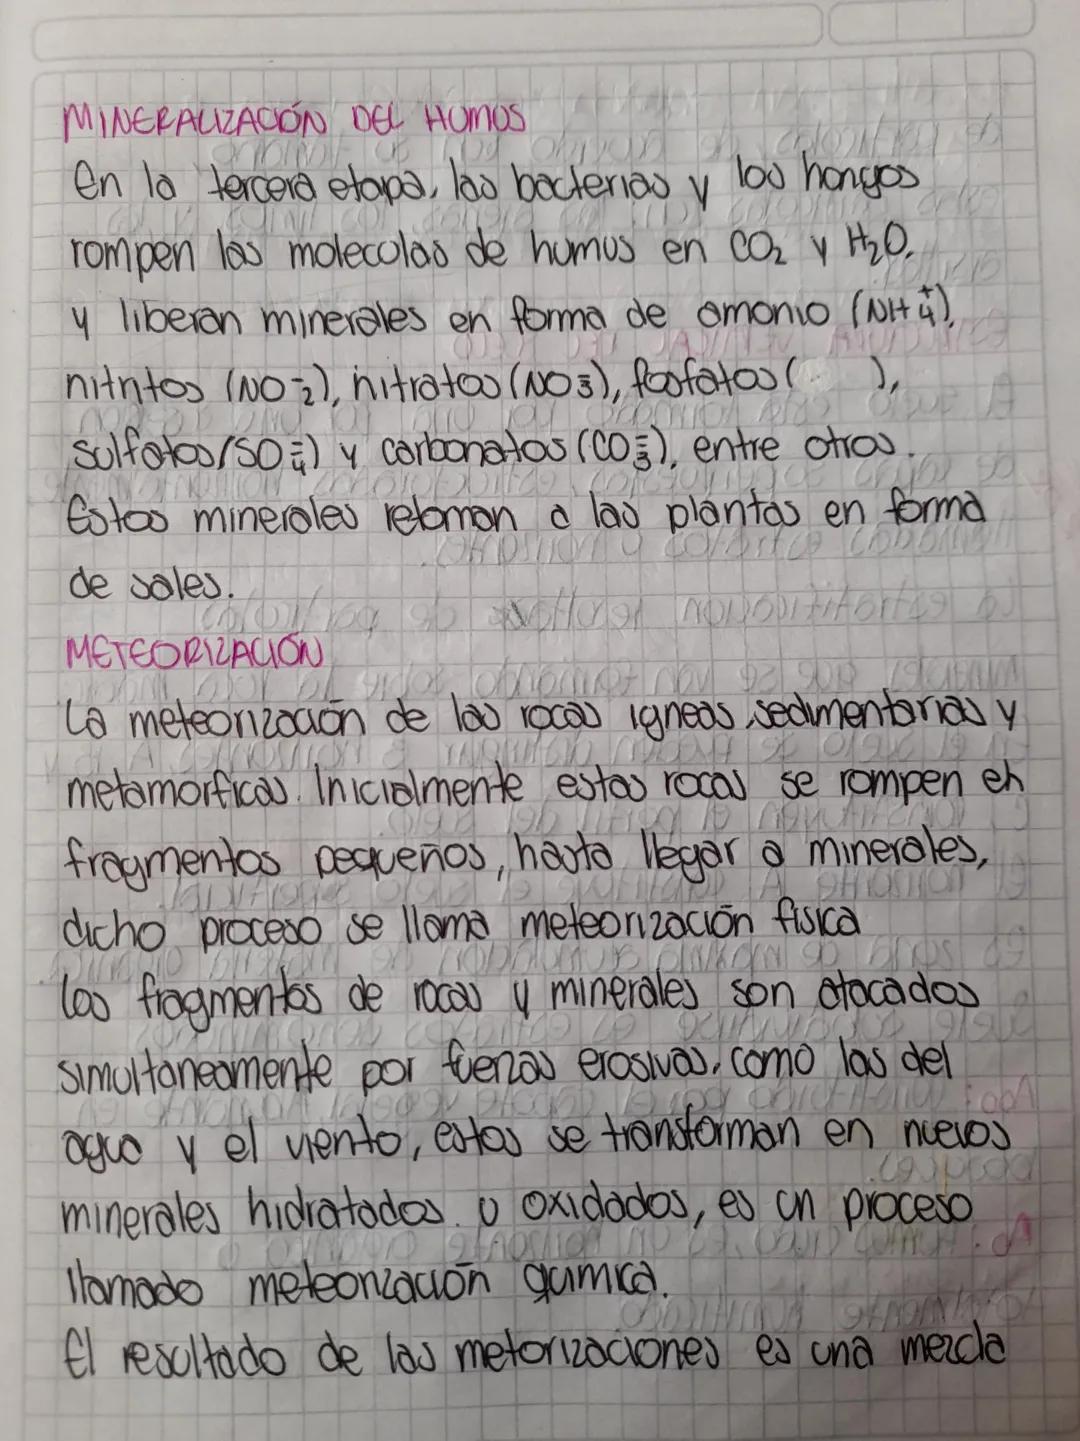 MINERALIZACIÓN DEL HUMUS
En la tercera etapa, las bacterias y los hongos
rompen las moleculas de humus en CO₂ y H₂O,
y liberan minerales en forma de amonio (NH₄⁺),
nitritos (NO₂⁻), nitratos (NO₃⁻), fosfatos ( ),
sulfatos (SO₄⁼) y carbonatos (CO₃⁼), entre otros.
Estos minerales retornan a las plantas en forma
de sales.
METEORIZACIÓN
La meteorización de las rocas igneas, sedimentarias y
metamorficas. Inicialmente estas rocas se rompen en
fragmentos pequeños, hasta llegar a minerales,
dicho proceso se llama meteorización fisica
los fragmentos de rocas y minerales son atacados
simultaneamente por fuerzas erosivas, como las del
agua y el viento, estas se transforman en nuevos
minerales hidratados u oxidados, es un proceso
llamado meteorización quimica.
El resultado de las metorizaciones es una mezcla